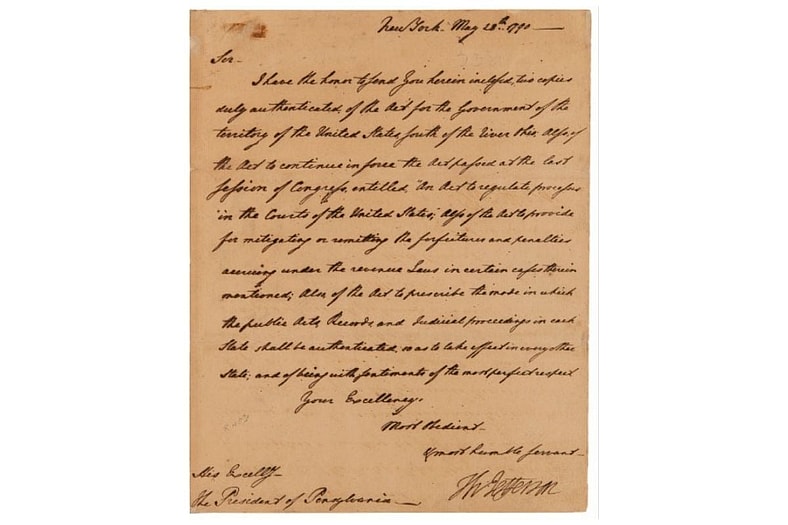 New York May 28th 1790
Sir
I have the honor to send you herein inclosed, two copies
duly authenticated, of the Act for the Government of the
territory of the United States, south of the river Ohio, Also, of
the Act to continue in force the Act passed at the last
session of Congress, entitled, "An Act to regulate processes
"in the Courts of the United States", Also of the Act to provide
for mitigating or remitting the forfeitures and penalties
accruing under the revenue Laws in certain cases therein
mentioned; Also, of the Act to prescribe the mode in which
the public Acts, Records, and Judicial proceedings in each
State shall be authenticated, so as to take effect in every other
State; and of being with sentiments of the most perfect respect
Your Excellency's
Most Obedient
& most humble servant
His Excelly
The President of Pensylvania
Th: Jefferson